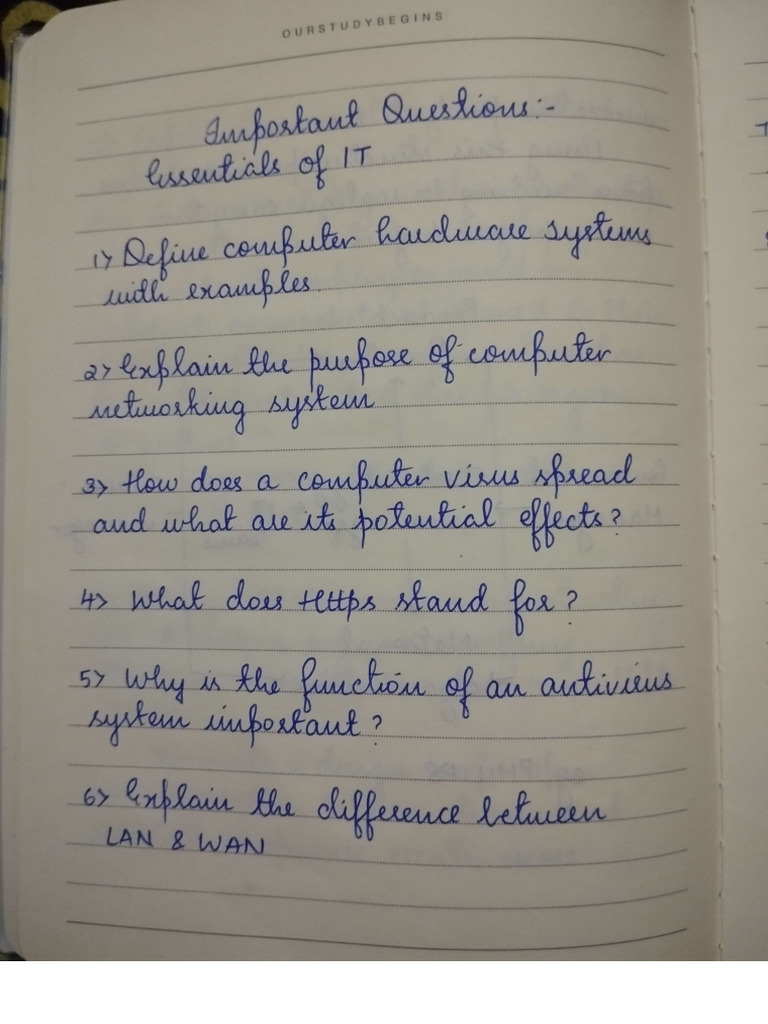 OURSTUDYBEGINS
Important Questions:-
Essentials of IT
1> Define computer hardware systems
with examples.
2> Explain the purpose of computer
networking system
3> How does a computer virus spread
and what are its potential effects?
4> What does Https stand for?
5> Why is the function of an antivirus
system important?
6> Explain the difference between
LAN & WAN